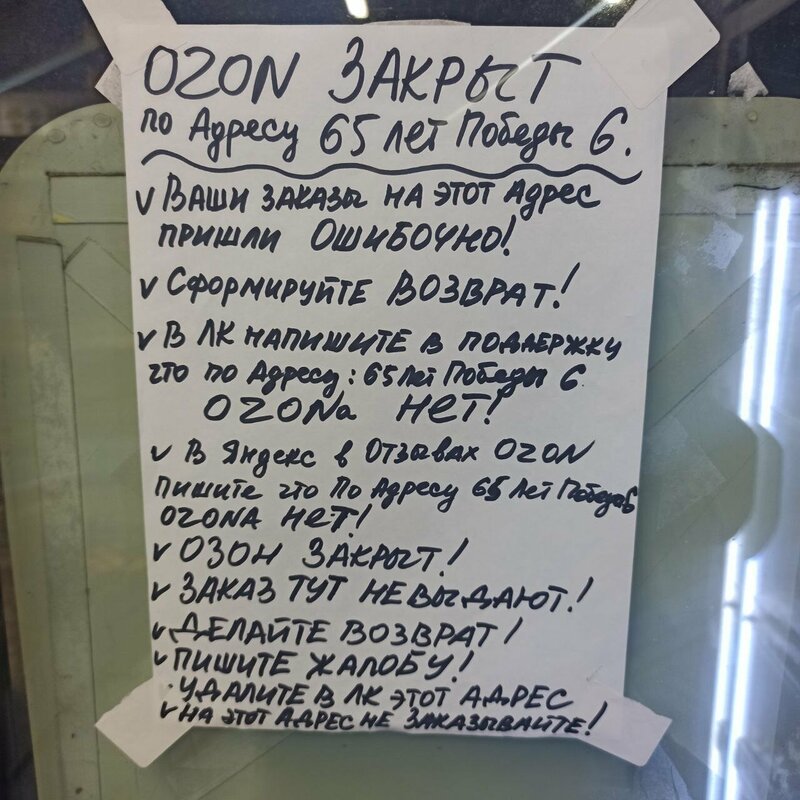 OZON ЗАКРЫТ
по Адресу 65 лет Победы 6.
✓ Ваши заказы на этот Адрес
пришли ОШИБОЧНО!
✓ Сформируйте ВОЗВРАТ!
✓ В ЛК напишите в поддержку
что по Адресу: 65 лет Победы 6
OZONа НЕТ!
✓ В Яндекс в Отзывах OZON
пишите что По Адресу 65 Лет Победы 6
OZONA НЕТ!
✓ ОЗОН ЗАКРЫТ!
✓ ЗАКАЗ ТУТ НЕ ВЫДАЮТ!
✓ ДЕЛАЙТЕ ВОЗВРАТ!
✓ ПИШИТЕ ЖАЛОБУ!
· УДАЛИТЕ В ЛК ЭТОТ АДРЕС
✓ НА ЭТОТ АДРЕС НЕ ЗАКАЗЫВАЙТЕ!